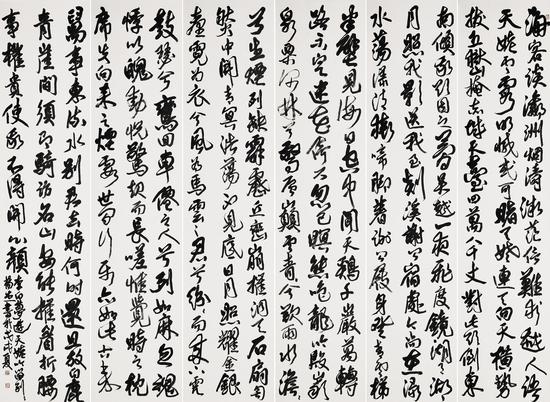 海客談瀛洲煙濤渺茫信難求越人語
天姥雲霓明滅或可睹天姥連天向天橫勢
拔五嶽掩赤城天臺四萬八千丈對此欲倒東
南傾我欲因之夢吳越一夜飛度鏡湖月湖
月照我影送我至剡溪謝公宿處今尚在淥
水蕩漾清猿啼腳著謝公屐身登青雲梯
半壁見海日空中聞天雞千巖萬轉
路不定迷花倚石忽已暝熊咆龍吟殷巖
泉慄深林兮驚層巔雲青青兮欲雨水澹澹
兮生煙列缺霹靂丘巒崩摧洞天石扇訇
然中開青冥浩蕩不見底日月照耀金銀
臺霓為衣兮風為馬雲之君兮紛紛而來下虎
鼓瑟兮鸞回車仙之人兮列如麻忽魂
悸以魄動恍驚起而長嗟惟覺時之枕
席失向來之煙霞世間行樂亦如此古來
萬事東流水別君去時何時還且放白鹿
青崖間須即騎訪名山安能摧眉折腰
事權貴使我不得開心顏
李白夢遊天姥吟留別
書於戊戌夏